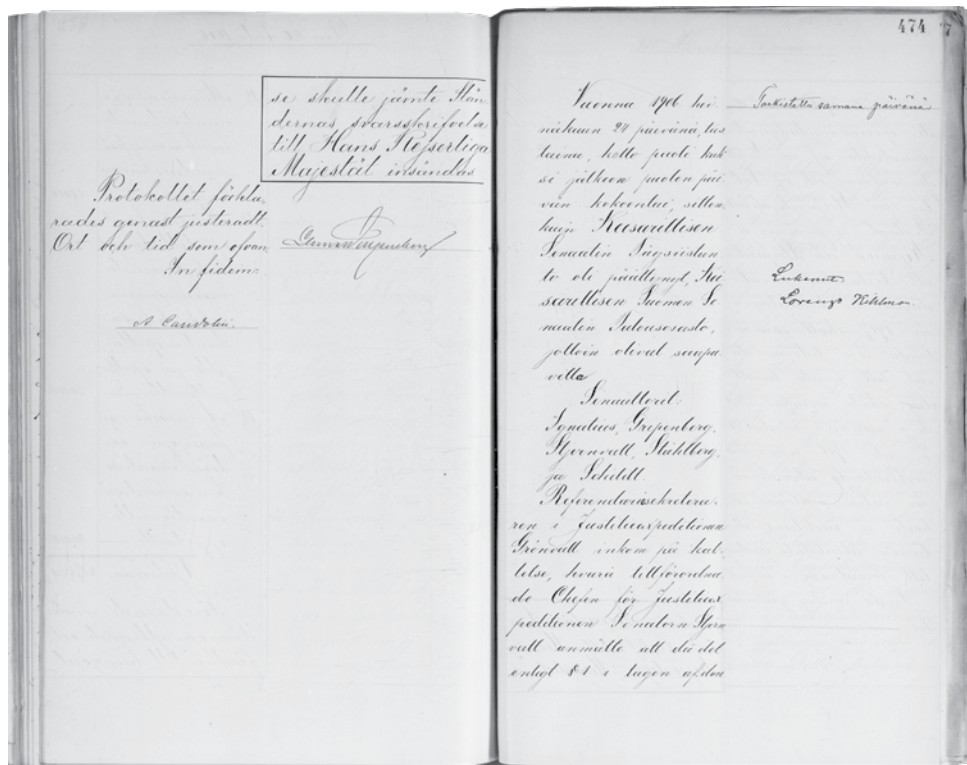 se skulle jämte Stän-
dernas svarsskrifvelse
till Hans Kejserliga
Majestät insändas
Protokollet förkla-
rades genast justeradt.
Ort och tid som ofvan
In fidem:
A. Candolin.
474
7
Vuonna 1906 hei-
näkuun 24 päivänä, tiis-
taina, kello puoli kak-
si jälkeen puolen päi-
vän kokoontui, sitten-
kuin Keisarillisen
Senaatin Täysiistun-
to oli päättynyt, Kei-
sarillisen Suomen Se-
naatin Talousosasto,
jolloin olivat saapu-
villa
Senaattorit:
Ignatius, Gripenberg,
Stjernvall, Ståhlberg,
ja Schildt.
Referendariesekretera-
ren i Justitieexpeditionen
Grönvall inkom på kal-
lelse, hvaru tillförordna-
de Chefen för Justitieex
peditionen Senatorn Stjern
vall anmälte att då det
enligt § 1 i lagen af den
Tarkistettu samana päivänä
Lukenut
Lorenzo Kihlman.